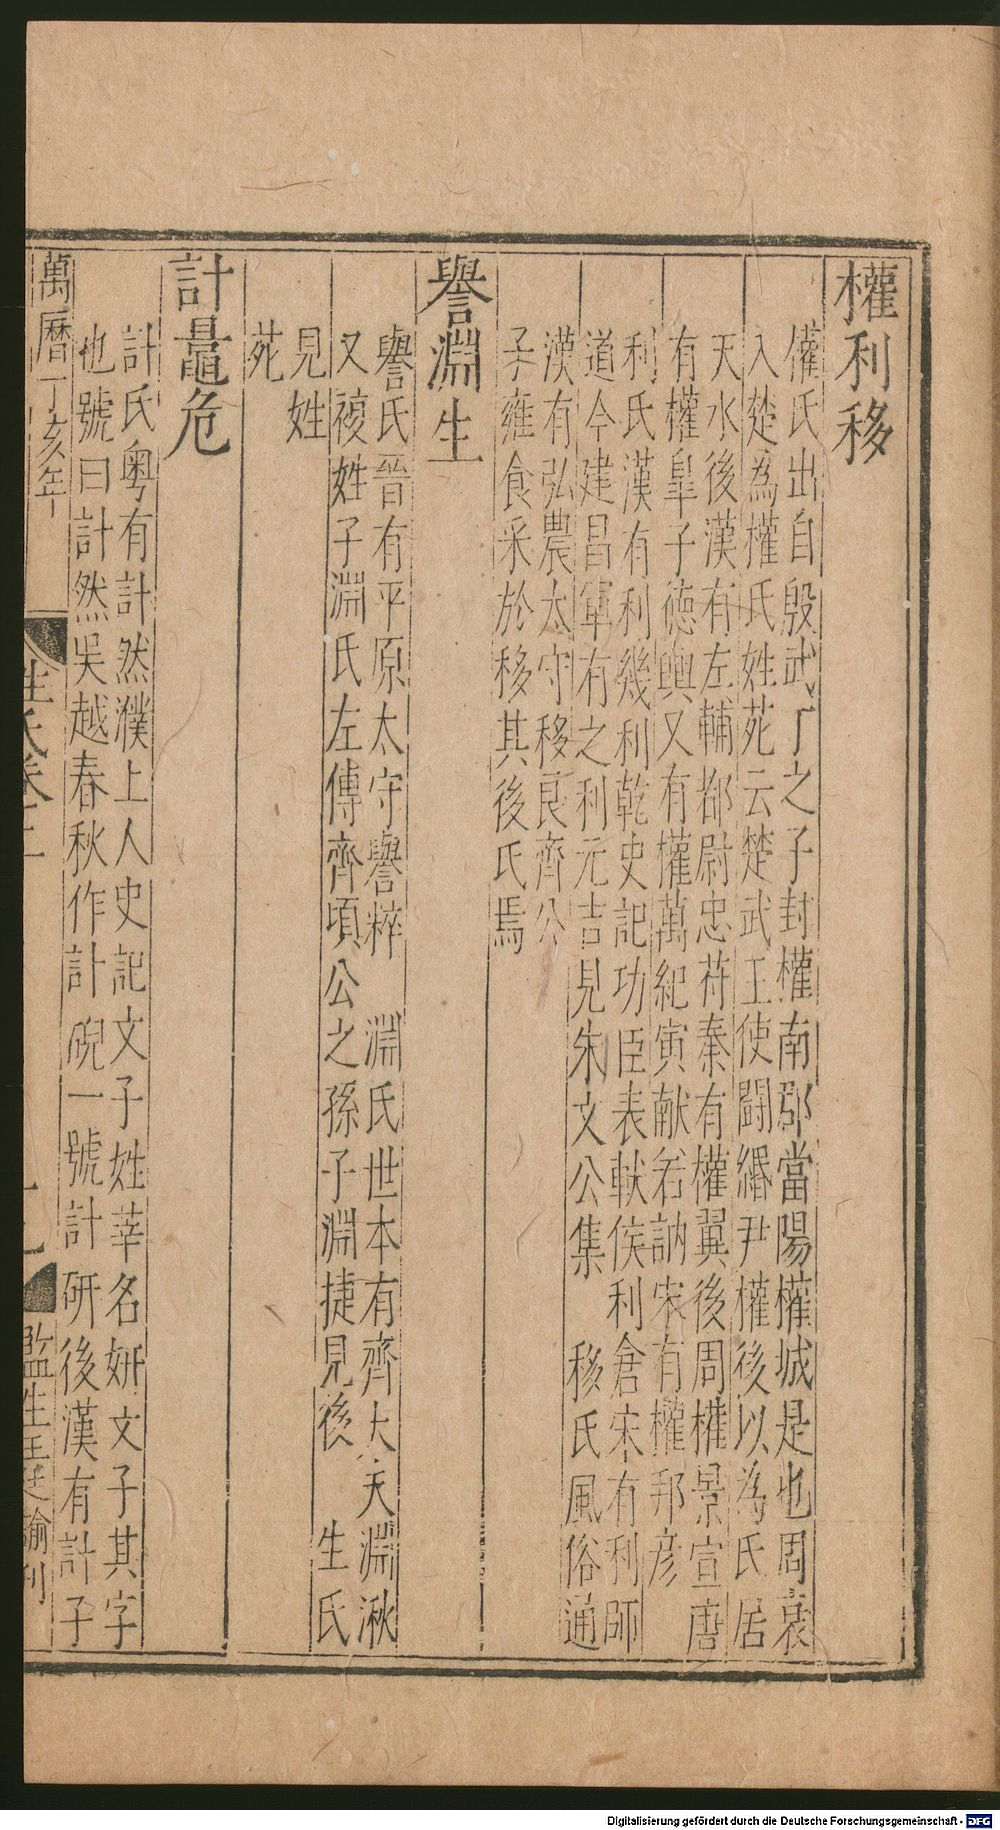 權利移
權氏出自殷武丁之子封權南郡當陽權城是也周衰
入楚為權氏姓苑云楚武王使鬬緡尹權後以為氏居
天水後漢有左輔都尉忠苻秦有權翼後周權景宣唐
有權臯子德輿又有權萬紀寅献若訥宋有權邦彦
利氏漢有利幾利乾史記功臣表軑侯利倉宋有利師
道今建昌軍有之利元吉見朱文公集 移氏風俗通
漢有弘農太守移良齊公
子雍食采於移其後氏焉
譽淵生
譽氏晉有平原太守譽粹 淵氏世本有齊大夫淵湫
又複姓子淵氏左傳齊頃公之孫子淵捷見後 生氏
見姓
苑
計鼂危
計氏粤有計然濮上人史記文子姓莘名妍文子其字
也號曰計然吳越春秋作計硯一號計研後漢有計子
萬曆丁亥年
姓氏卷二
監生
刊
Digitalisierung gefördert durch die Deutsche Forschungsgemeinschaft - DFG